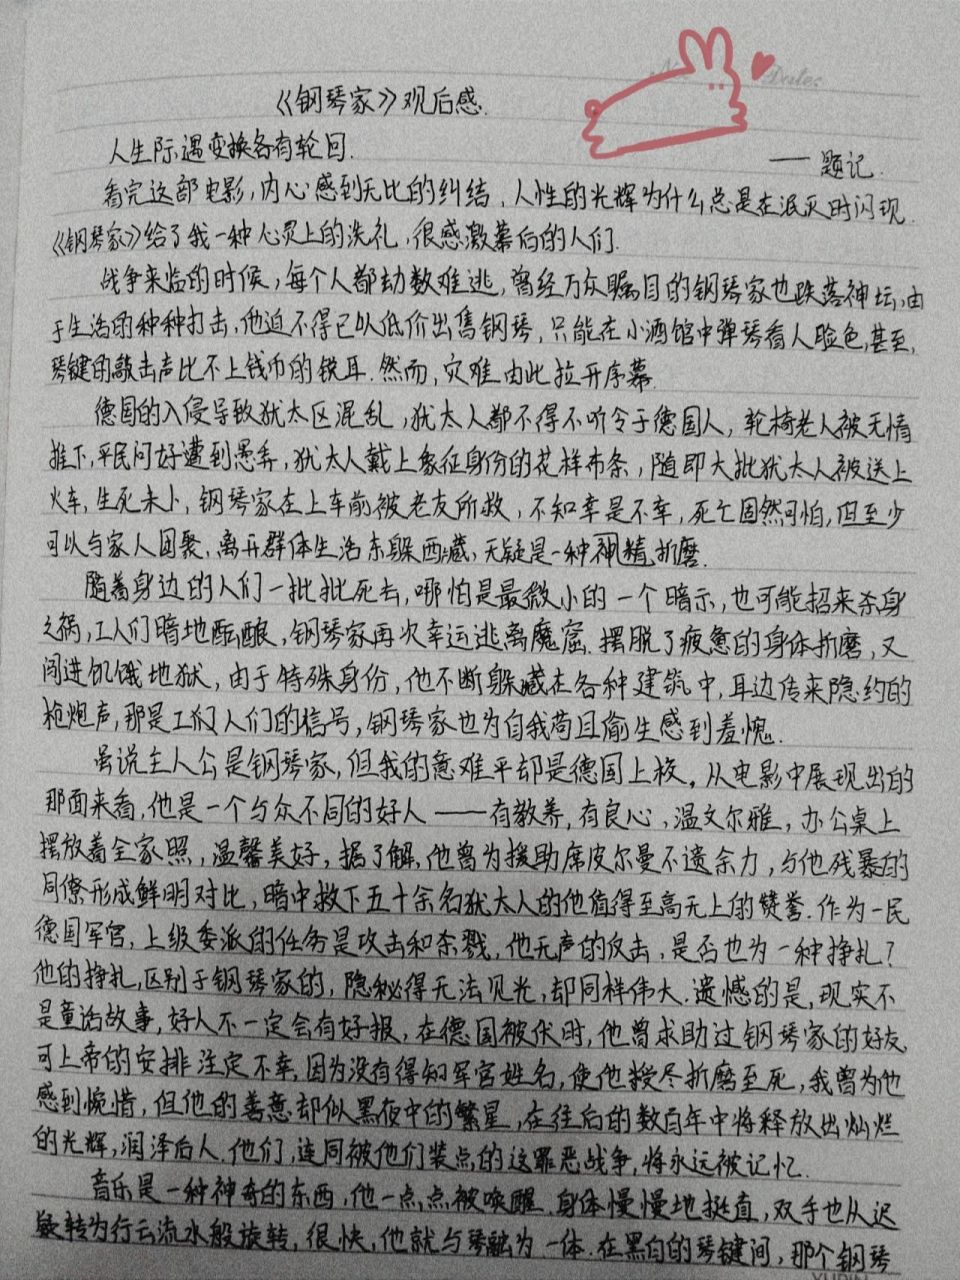 Date:
《钢琴家》观后感.
人生际遇变换各有轮回.
—— 题记.
看完这部电影,内心感到无比的纠结,人性的光辉为什么总是在泯灭时闪现.
《钢琴家》给了我一种心灵上的洗礼,很感激幕后的人们.
战争来临的时候,每个人都劫数难逃,曾经万众瞩目的钢琴家也跌落神坛,由
于生活的种种打击,他迫不得已以低价出售钢琴,只能在小酒馆中弹琴看人脸色,甚至,
琴键的敲击声比不上钱币的铁耳.然而,灾难由此拉开序幕.
德国的入侵导致犹太区混乱,犹太人都不得不听令于德国人,轮椅老人被无情
推下,平民问好遭到愚弄,犹太人戴上象征身份的花样布条,随即大批犹太人被送上
火车,生死未卜,钢琴家在上车前被老友所救,不知幸是不幸,死亡固然可怕,但至少
可以与家人团聚,离开群体生活东躲西藏,无疑是一种神精折磨.
随着身边的人们一批批死去,哪怕是最微小的一个暗示,也可能招来杀身
之祸,工人们暗地酝酿,钢琴家再次幸运逃离魔窟.摆脱了疲惫的身体折磨,又
闯进饥饿地狱,由于特殊身份,他不断躲藏在各种建筑中,耳边传来隐约的
枪炮声,那是工们人们的信号,钢琴家也为自我苟且偷生感到羞愧.
虽说主人公是钢琴家,但我的意难平却是德国上校。从电影中展现出的
那面来看,他是一个与众不同的好人——有教养,有良心,温文尔雅,办公桌上
摆放着全家照,温馨美好,据了解,他曾为援助席皮尔曼不遗余力,与他残暴的
同僚形成鲜明对比,暗中救下五十余名犹太人的他值得至高无上的赞誉.作为一民
德国军官,上级委派的任务是攻击和杀戮,他无声的反击,是否也为一种挣扎?
他的挣扎区别于钢琴家的,隐秘得无法见光,却同样伟大.遗憾的是,现实不
是童话故事,好人不一定会有好报,在德国被伏时,他曾求助过钢琴家的好友
可上帝的安排注定不幸,因为没有得知军官姓名,使他受尽折磨至死,我曾为他
感到惋惜,但他的善意却似黑夜中的繁星,在往后的数百年中将释放出灿烂
的光辉,润泽后人.他们,连同被他们装点的这罪恶战争,将永远被记忆.
音乐是一种神奇的东西,他一点点被唤醒.身体慢慢地挺直,双手也从迟
疑转为行云流水般旋转,很快,他就与琴融为一体.在黑白的琴键间,那个钢琴